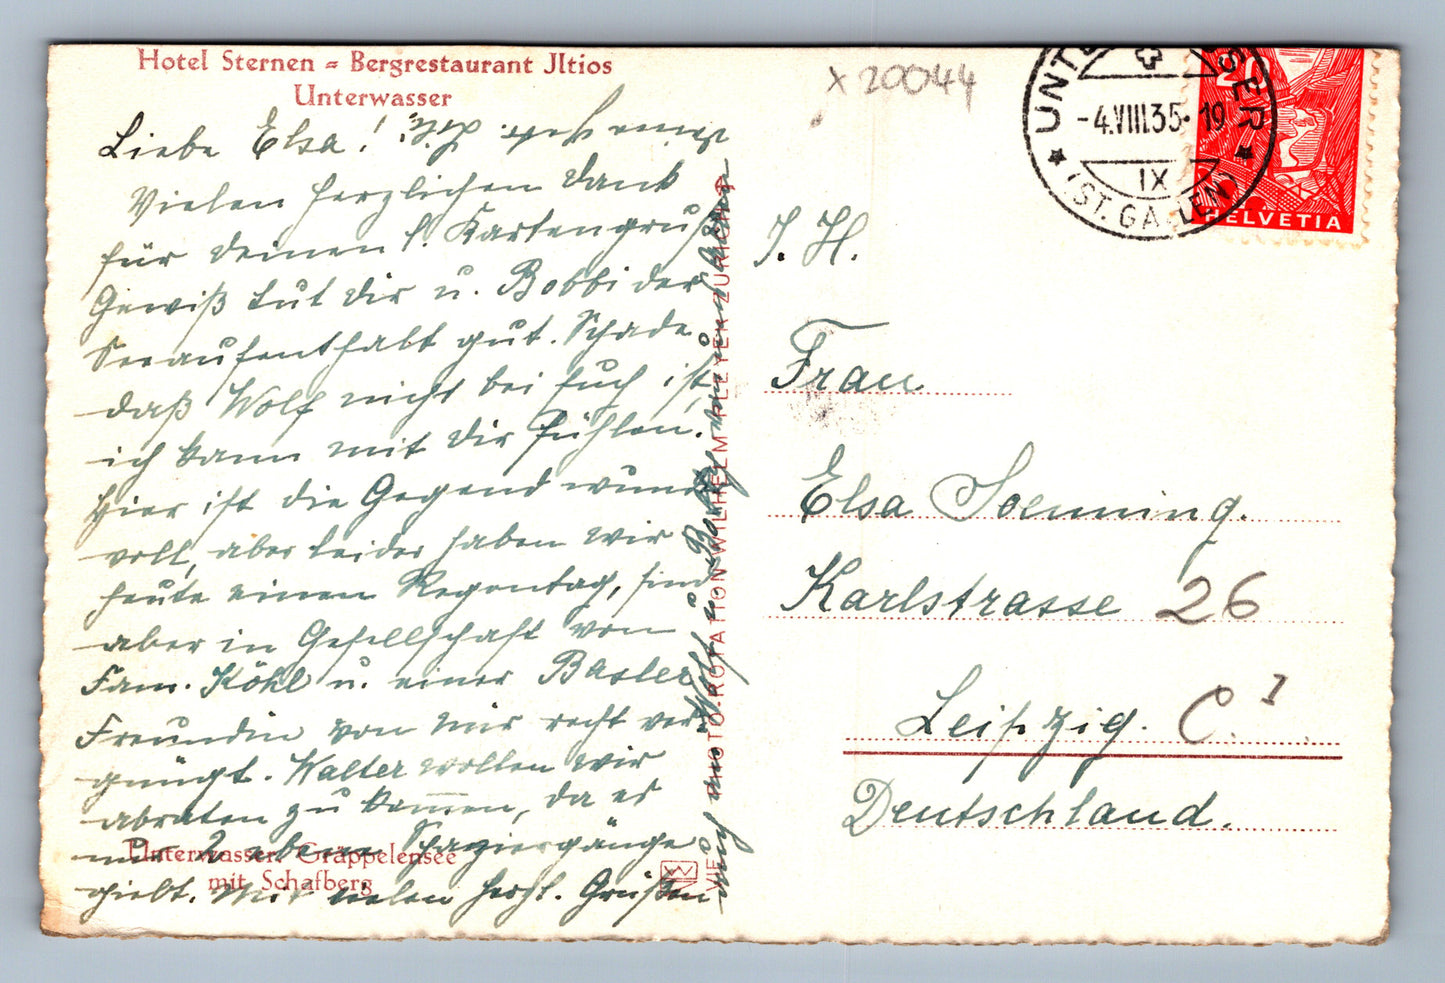 Hotel Sternen = Bergrestaurant Jltios
Unterwasser
Liebe Elsa!
Vielen herzlichen Dank
für deinen l. Kartengruß
Gewiß tut dir u. Bobbi der
Seeaufenthalt gut. Schade
daß Wolf nicht bei Euch ist,
ich kann mit dir fühlen.
Hier ist die Gegend wunder
voll, aber leider haben wir
heute einen Regentag, sind
aber in Gesellschaft von
Fam. Köhl u. einer Basler
Freundin von mir recht ver
gnügt. Walter wollen wir
abraten zu kommen, da es
nur 2 ebene Spaziergänge
giebt. Mit vielen herzl. Grüßen
auch an Wolf u. Bobby von
Unterwasser Gräppelensee
mit Schafberg
VIE PHOTO-ROTATION WILHELM PLEYER ZÜRICH
X 20044
UNTERWASSER
-4.VIII.35-19
IX
(ST. GALLEN)
HELVETIA
I. H.
Frau
Elsa Soenning.
Karlstrasse 26
Leipzig. C. I
Deutschland.